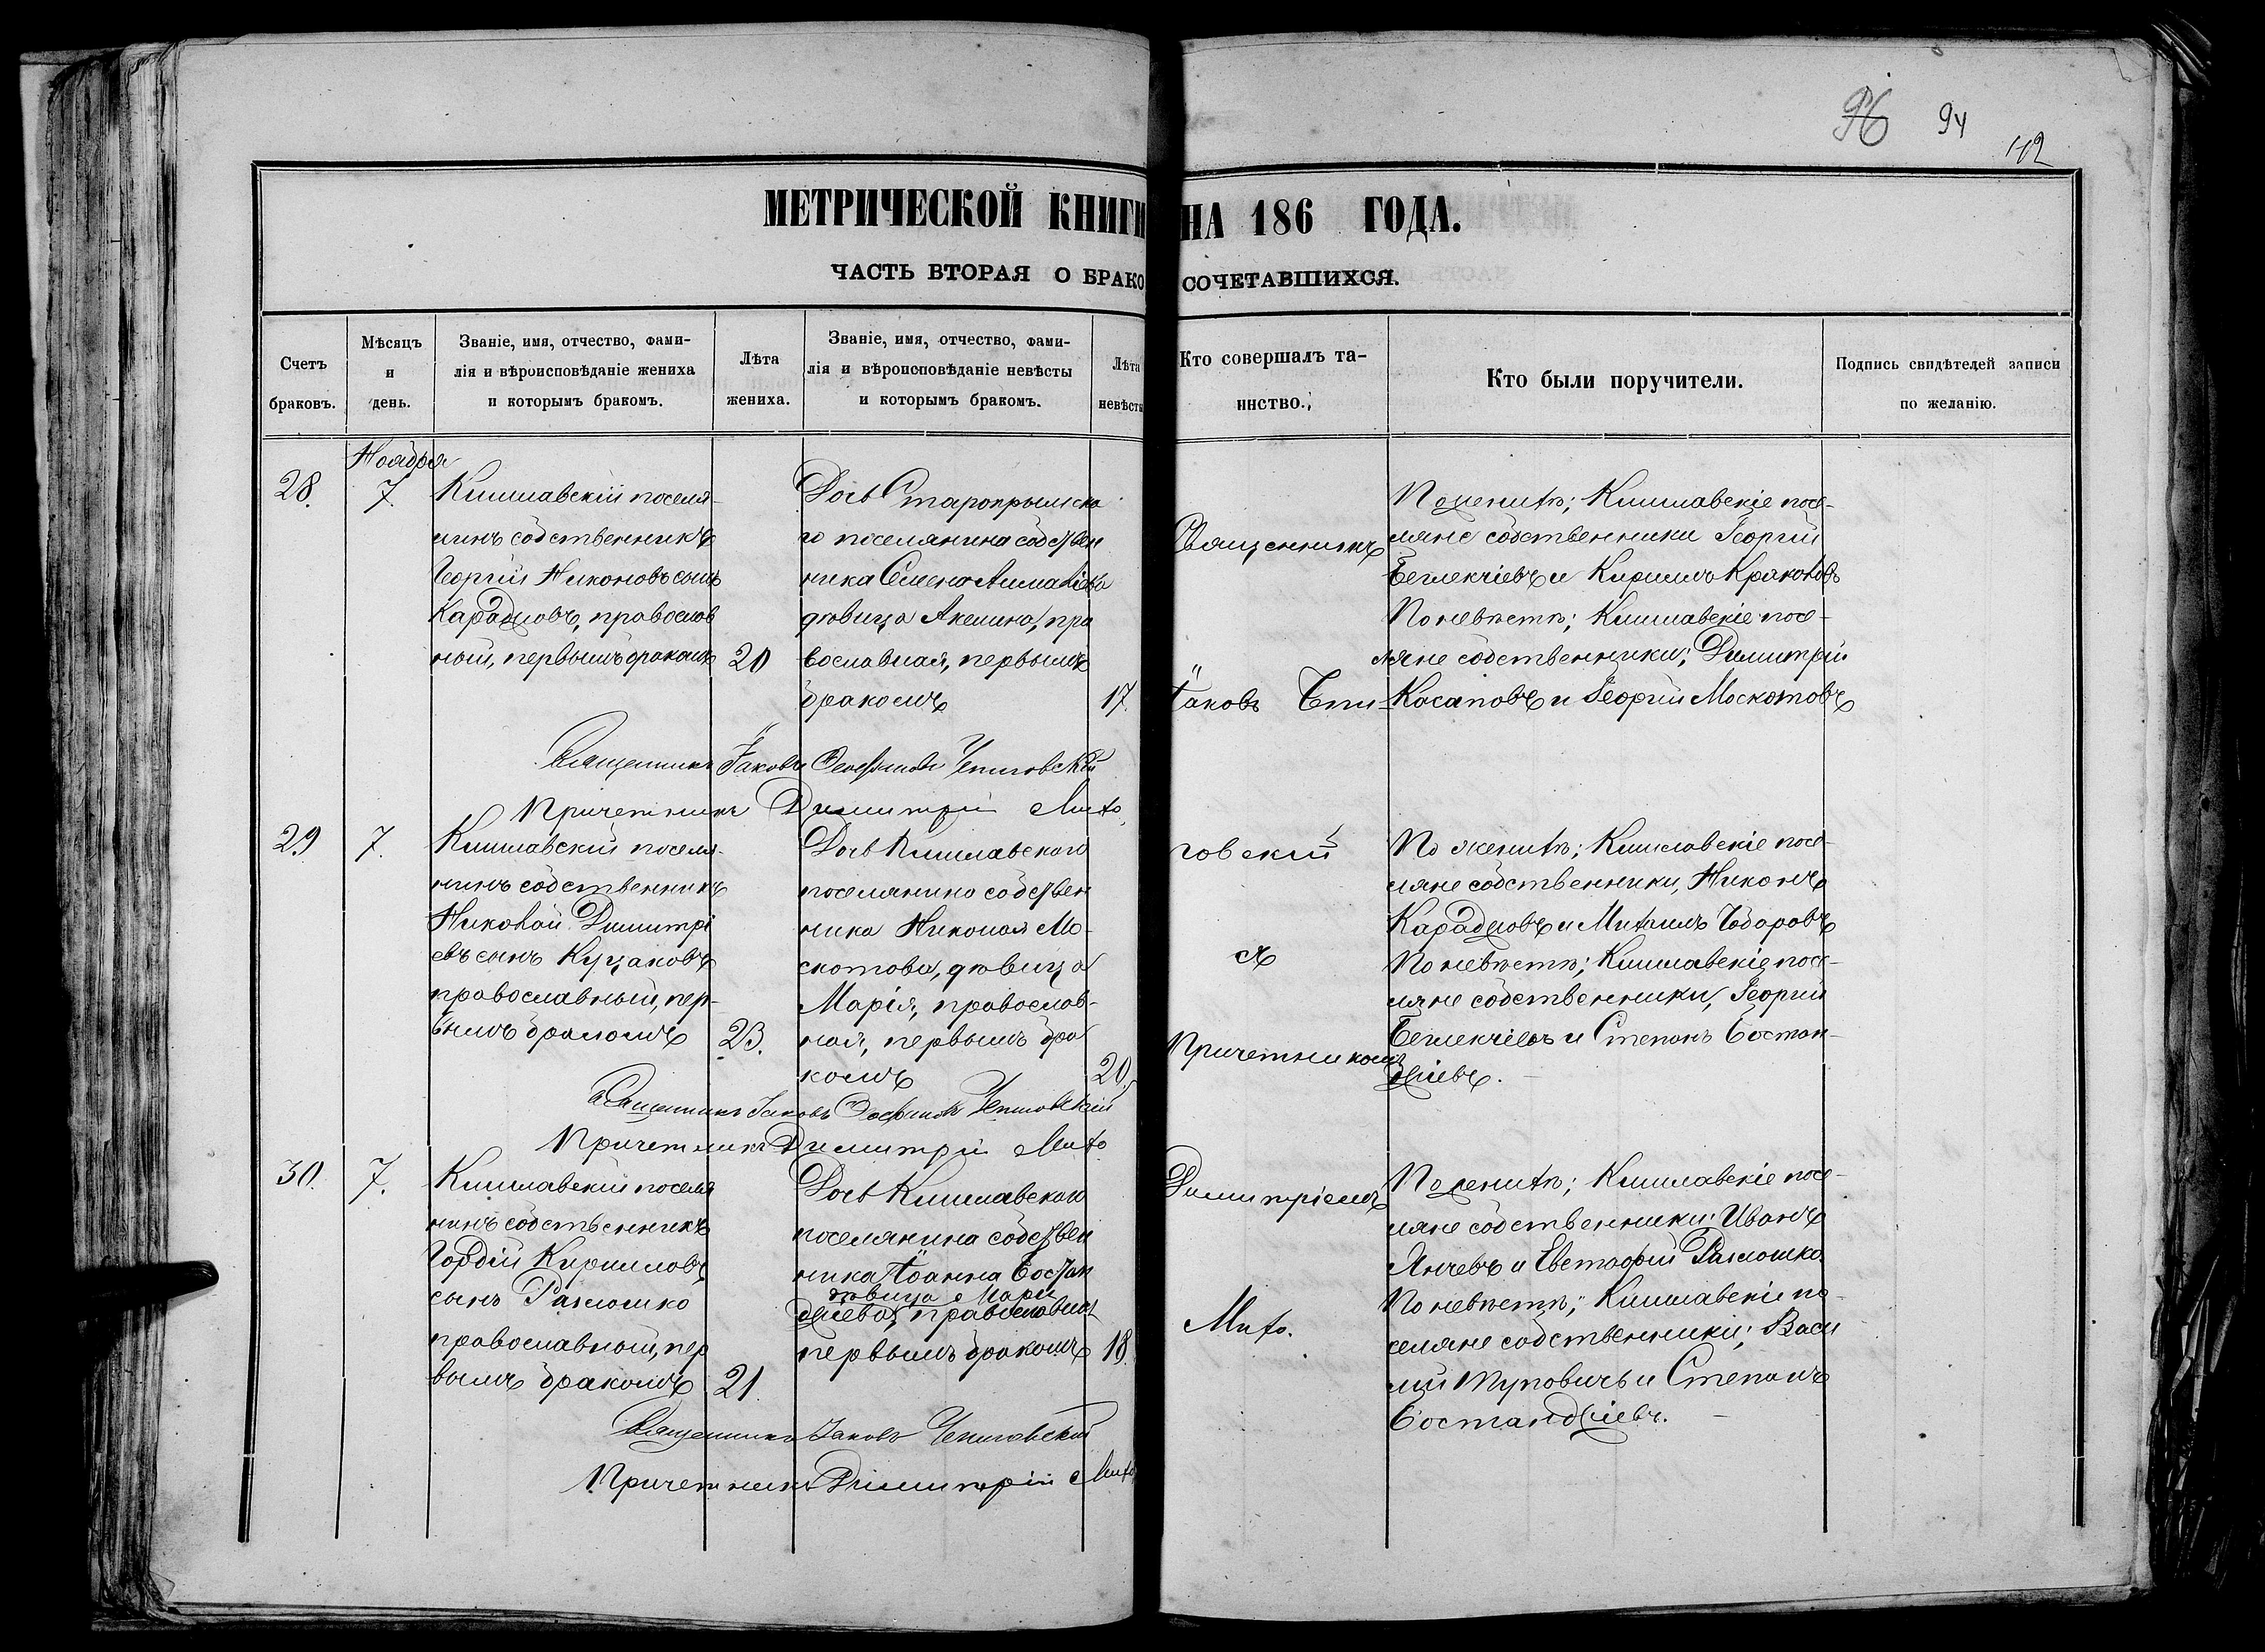 96 94
112
МЕТРИЧЕСКОЙ КНИГИ НА 186 ГОДА.
ЧАСТЬ ВТОРАЯ О БРАКОСОЧЕТАВШИХСЯ.
Счетъ браковъ.
Мѣсяцъ и день.
Званіе, имя, отчество, фами-
лія и вѣроисповѣданіе жениха
и которымъ бракомъ.
Лѣта жениха.
Званіе, имя, отчество, фами-
лія и вѣроисповѣданіе невѣсты
и которымъ бракомъ.
Лѣта невѣсты
Кто совершалъ та-
инство.
Кто были поручители.
Подпись свидѣтелей записи
по желанію.
Ноября
28. 7.
Кишлавскій поселя-
нинъ собственникъ
Георгій Никоновъ сынъ
Караджовъ, православ
ный, первымъ бракомъ
20
Дочь Старокрымска
го поселянина собствен
ника Семена
дѣвица Акелина, пра
вославная, первымъ
бракомъ
17.
Священникъ
Іаковъ Чепи-
По женихѣ; Кишлавскіе посе-
ляне собственники Георгій
Беглекчіевъ и Кирилъ
По невѣстѣ; Кишлавскіе посе-
ляне собственники; Димитрій
Касаповъ и Георгій Москотовъ
Священникъ Іаковъ Чепиговскій
Причетникъ Димитрій
29 7.
Кишлавскій поселя-
нинъ собственникъ
Николай Димитрі
евъ сынъ Куцаковъ
православный, пер-
вымъ бракомъ
23.
Дочь Кишлавскаго
поселянина собствен
ника Николая Мо-
скотова, дѣвица
Марія, православ-
ная, первымъ бра
комъ
20,
говскій
съ
Причетникомъ
По женихѣ; Кишлавскіе посе-
ляне собственники, Никонъ
Караджовъ и Михаилъ Тодоровъ
По невѣстѣ; Кишлавскіе посе-
ляне собственники, Георгій
Беглекчіевъ и Степанъ Бостан-
джіевъ.
Священникъ Іаковъ Чепиговскій
Причетникъ Димитрій
30. 7.
Кишлавскій поселя
нинъ собственникъ
Гордій Кирилловъ
сынъ
православный, пер
вымъ бракомъ
21.
Дочь Кишлавскаго
поселянина собствен
ника Іоанна Бостан
дѣвица Марія
джіева, православная
первымъ бракомъ
18.
Димитріемъ
По женихѣ; Кишлавскіе посе-
ляне собственники: Иванъ
Янчевъ и Евстафій
По невѣстѣ; Кишлавскіе по-
селяне собственники; Васи
лій Туповичъ и Степанъ
Бостанджіевъ.
Священникъ Іаковъ Чепиговскій
Причетникъ Димитрій